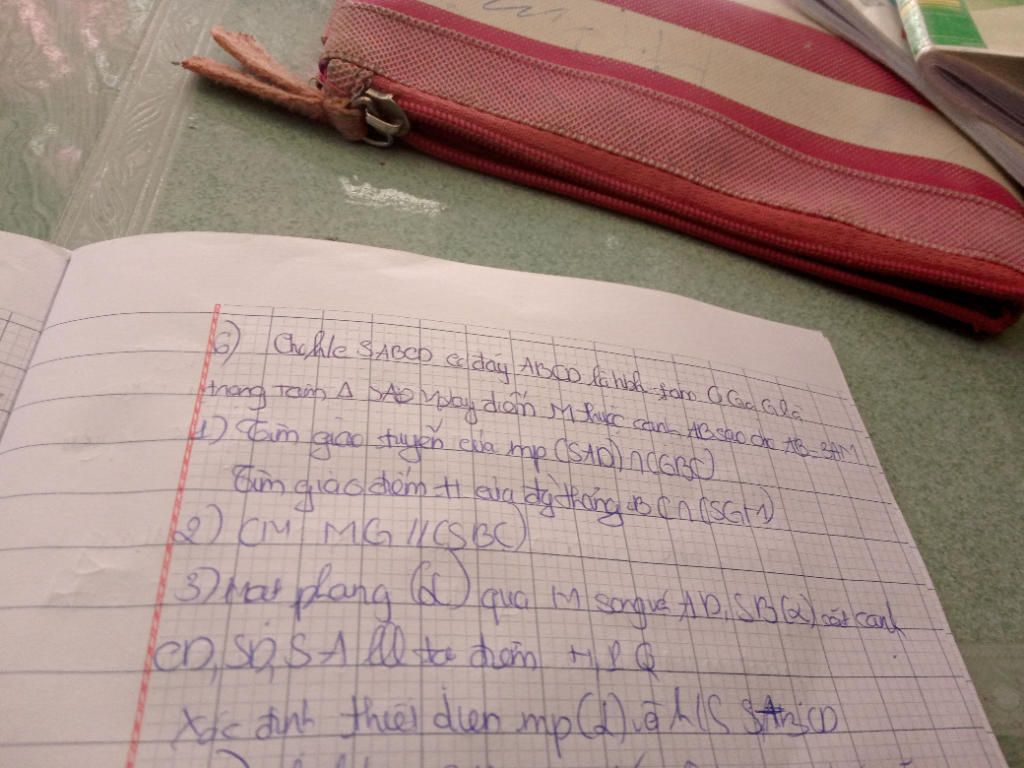 6) Cho hlc SABCD có đáy ABCD là hbh tâm O Gọi G là
trọng tâm Δ SAD lấy điểm M thuộc cạnh AB sao cho AB = 3AM
1) Tìm giao tuyến của mp (SAD) ∩ (GBC)
Tìm giao điểm H của đg thẳng BC ∩ (SGM)
2) CM MG // (SBC)
3) Mặt phẳng (α) qua M song với AD, SB (α) cắt cạnh
CD, SD, SA lll tại điểm P Q
Xác định thiết diện mp (α) và h/c SABCD